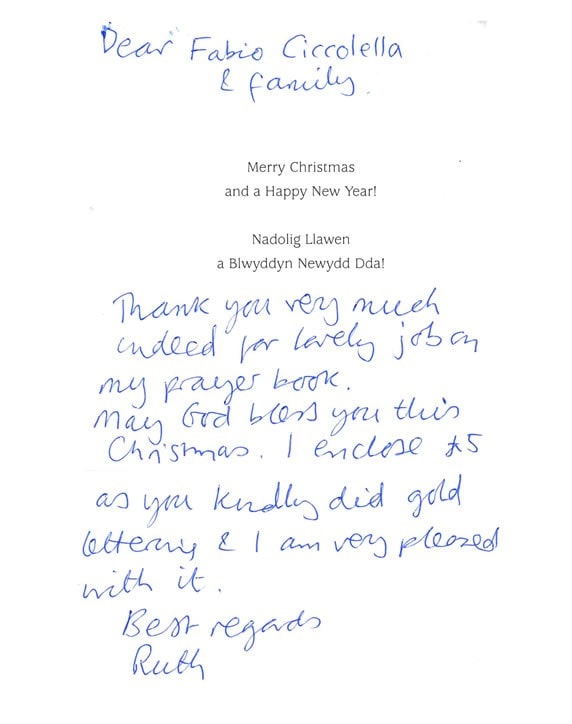 Dear Fabio Ciccolella
& family.
Merry Christmas
and a Happy New Year!
Nadolig Llawen
a Blwyddyn Newydd Dda!
Thank you very much
indeed for lovely job on
my prayer book.
May God bless you this
Christmas. I enclose £5
as you kindly did gold
lettering & I am very pleased
with it.
Best regards
Ruth